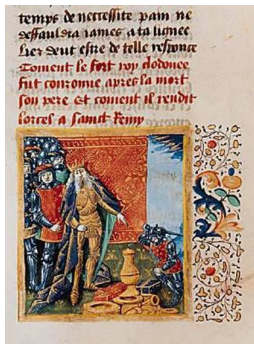 temps de necessite pain ne
deffauldra iames a ta lignee
Liez deut estre de telle responce
Coment le fort roy clodouee
fut couronne apres la mort
son pere Et coment il rendit
lorces a sainct Remy